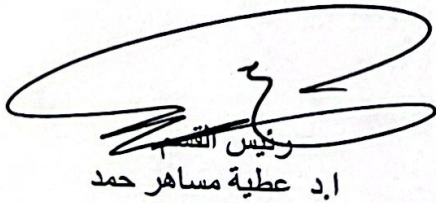 رئيس القسم
ا.د عطية مساهر حمد